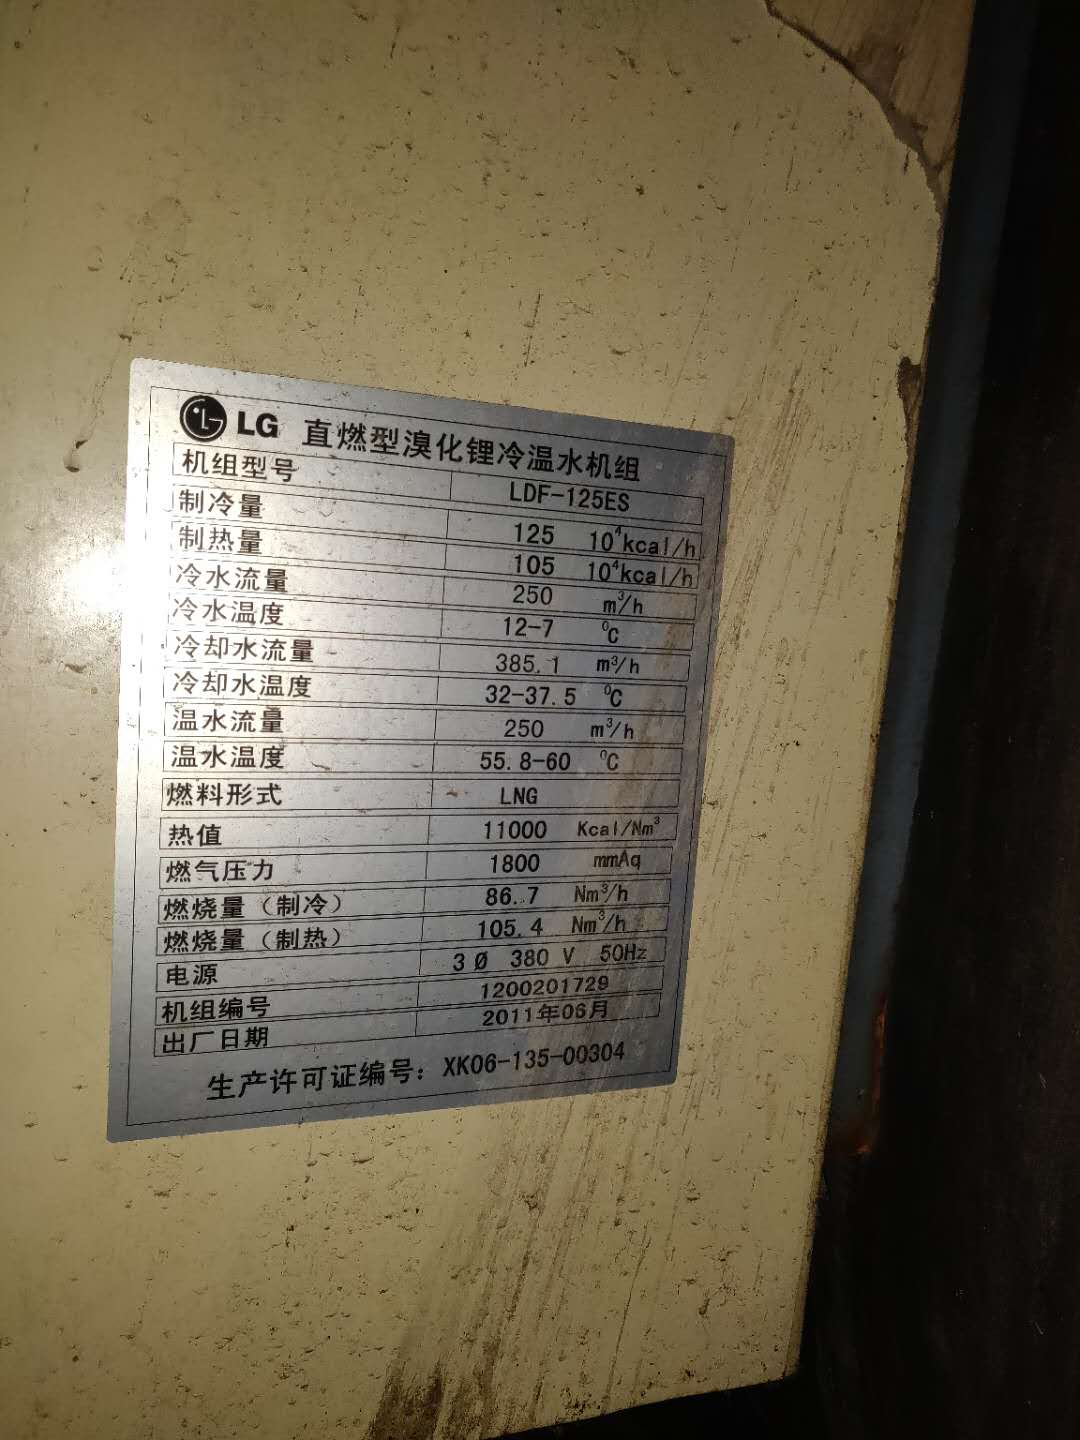 LG 直燃型溴化锂冷温水机组
机组型号 LDF-125ES
制冷量 125 10⁴kcal/h
制热量 105 10⁴kcal/h
冷水流量 250 m³/h
冷水温度 12-7 ⁰C
冷却水流量 385.1 m³/h
冷却水温度 32-37.5 ⁰C
温水流量 250 m³/h
温水温度 55.8-60 ⁰C
燃料形式 LNG
热值 11000 Kcal/Nm³
燃气压力 1800 mmAq
燃烧量(制冷) 86.7 Nm³/h
燃烧量(制热) 105.4 Nm³/h
电源 3Ø 380 V 50Hz
机组编号 1200201729
出厂日期 2011年06月
生产许可证编号: XK06-135-00304